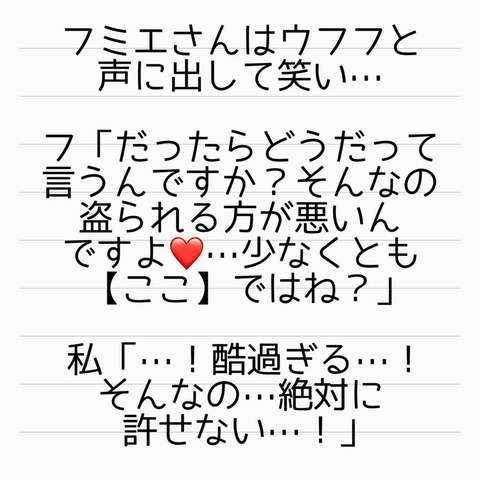 フミエさんはウフフと
声に出して笑い…
フ「だったらどうだって
言うんですか？そんなの
盗られる方が悪いん
ですよ❤️…少なくとも
【ここ】ではね？」
私「…！酷過ぎる…！
そんなの…絶対に
許せない…！」